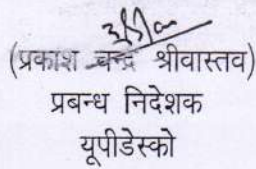 (प्रकाश चन्द्र श्रीवास्तव)
प्रबन्ध निदेशक
यूपीडेस्को